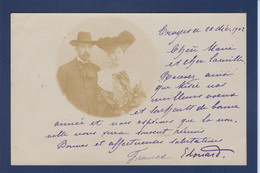 Troyes le 28 déc. 1902
Chère Marie
et chère Camille
Recevez ainsi
que Mère nos
meilleurs voeux
et souhaits de bonne
année et nous espérons que la nou-
velle nous verra souvent réunis
Bonnes et affectueuses salutations
France Edouard